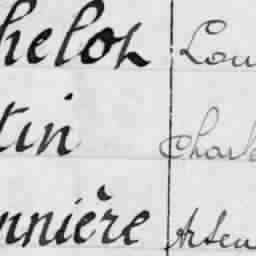 helot Lou
tin Charle
nnière Arsen